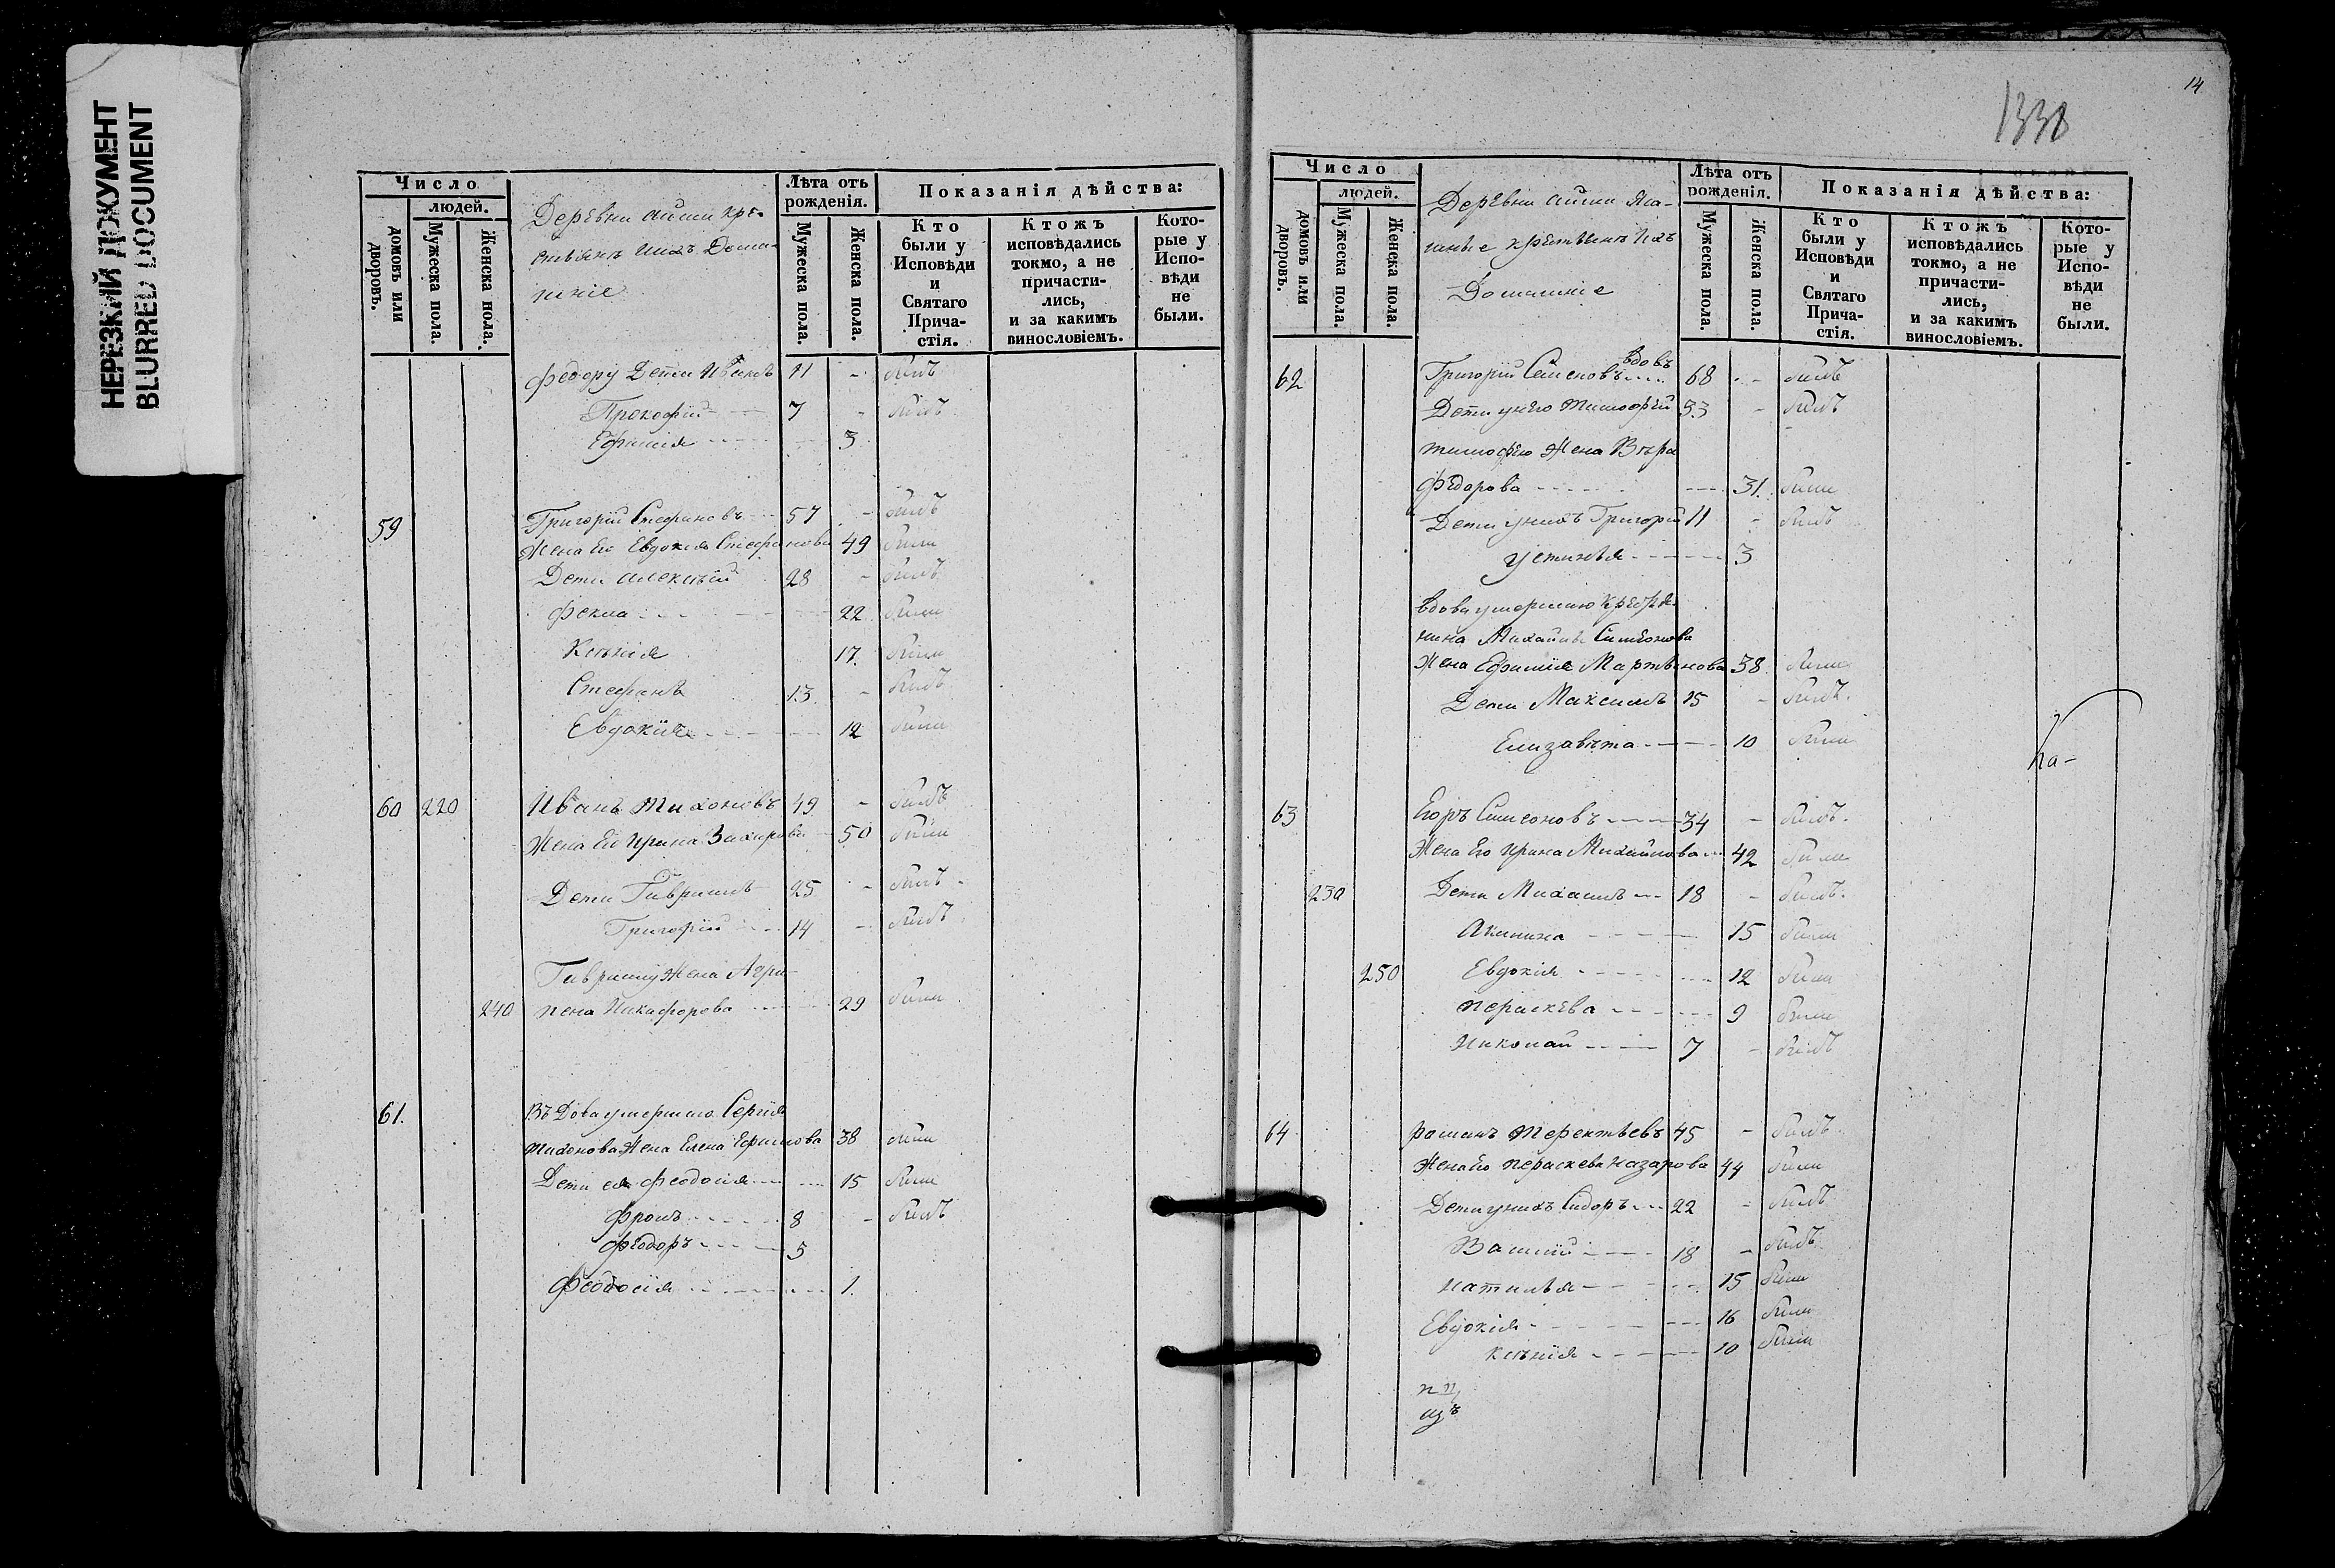 НЕРЕЗКИЙ ДОКУМЕНТ
BLURRED DOCUMENT
Число
людей.
домовъ или дворовъ.
Мужеска пола.
Женска пола.
Деревни Айши Кре-
стьянъ ихъ Домаш-
ние
Лѣта отъ рожденія.
Мужеска пола.
Женска пола.
Показанія дѣйства:
Кто были у Исповѣди и Святаго Прича-стія.
Ктожъ исповѣдались токмо, а не причасти-лись, и за какимъ винословіемъ.
Кото-рые у Испо-вѣди не были.
Федору Дети Иванъ 11 - былъ
Прокофий 7 - былъ
Ефимия 3
59 Григорий Стефановъ 57 - былъ
Жена Его Евдокия Стефанова 49 была
Дети Алексъй 28 - былъ
Фекла 22 была
Ксения 17. была
Стефанъ 13 - былъ
Евдокия 12 была
60 220 Иванъ Тихоновъ 49 - былъ
Жена Его Ирина Захарова 50 была
Дети Гаврилъ 25 - былъ
Григорий 14 - былъ
Гаврилу Жена Агри-
240 пена Никифорова 29 была
61. Въдова умершаго Сергия
Тихонова Жена Елена Ефимова 38 была
Дети ея Феодосия 15 была
Фролъ 8 - былъ
Федоръ 5
Феодосия 1.
14
1338
Число
людей.
домовъ или дворовъ.
Мужеска пола.
Женска пола.
Деревни Айши Яса-
шные крестьянъ ихъ
Домашние
Лѣта отъ рожденія.
Мужеска пола.
Женска пола.
Показанія дѣйства:
Кто были у Исповѣди и Святаго Прича-стія.
Ктожъ исповѣдались токмо, а не причасти-лись, и за какимъ винословіемъ.
Кото-рые у Испо-вѣди не были.
62 Григорий Семеновъ вдовъ 68 - былъ
Дети унего Тимофей 33 - былъ
Тимофею Жена Въра
Федорова 31. была
Дети унихъ Григорий 11 - былъ
Устинья 3
вдова умершаго Крестья-
нина Михайлы Симеонова
Жена Ефимия Мартынова 38 была
Дети Максимъ 15 - былъ.
Елизавъта 10 была
63 Егоръ Симеоновъ 34 - былъ.
Жена Его Ирина Михайлова 42 была
230 Дети Михаилъ 18 - былъ.
Акилина 15 была
250 Евдокия 12 была
Пераскева 9 была
Николай 7 - былъ
64 Романъ Терентьевъ 45 - былъ.
Жена Его Пераскева Назарова 44 была
Дети унихъ Сидоръ 22 - былъ
Василий 18 - былъ
Наталья 15 была
Евдокия 16 была
Ксения 10 была